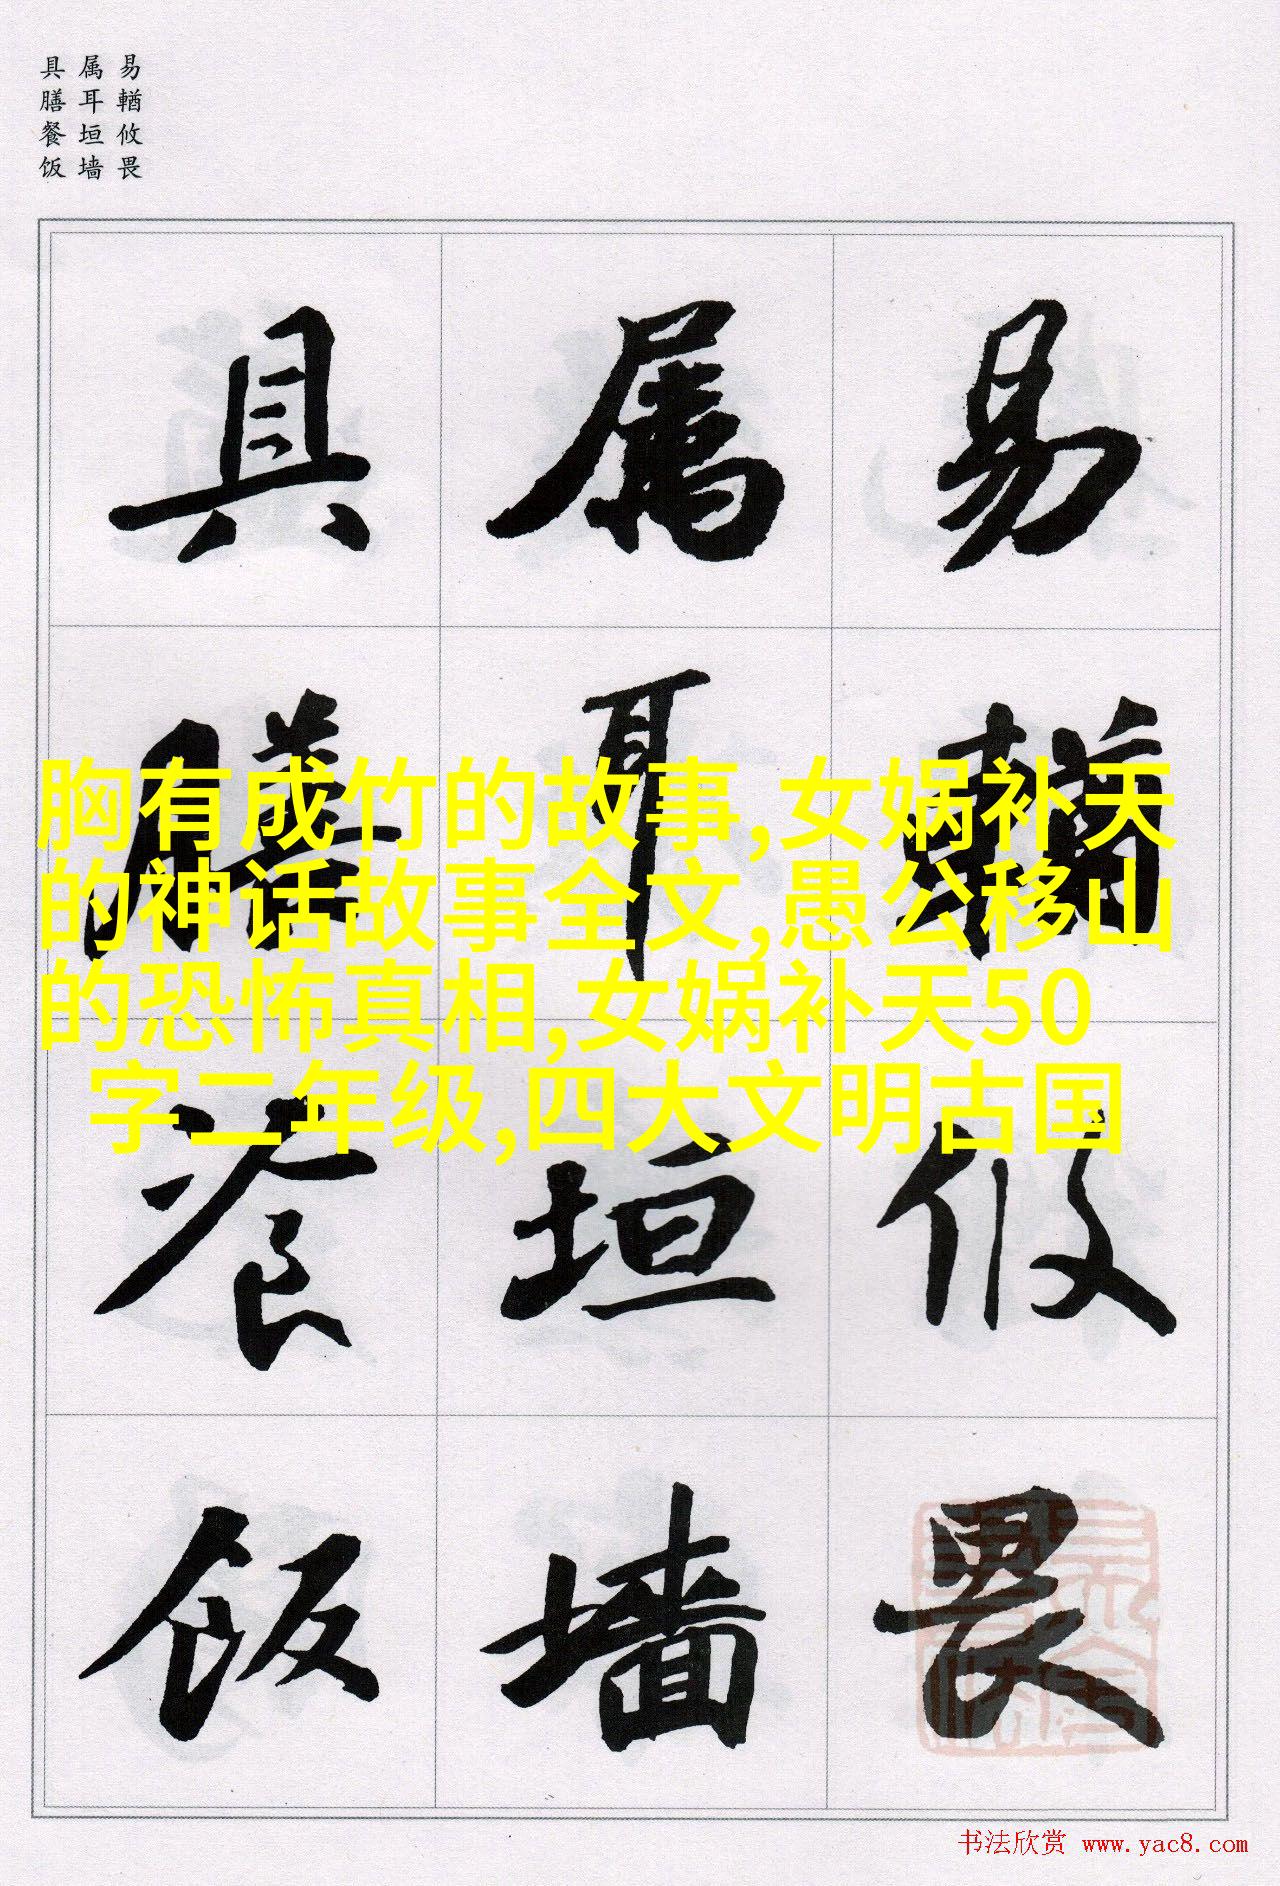 易輶攸畏
属耳垣墙
具膳餐饭
易輶攸畏
属耳垣墙
具膳餐饭
胸有成竹的故事,女娲补天
的神话故事全文,愚公移山
的恐怖真相,女娲补天50
字二年级,四大文明古国
书法欣赏 www.yac8.com